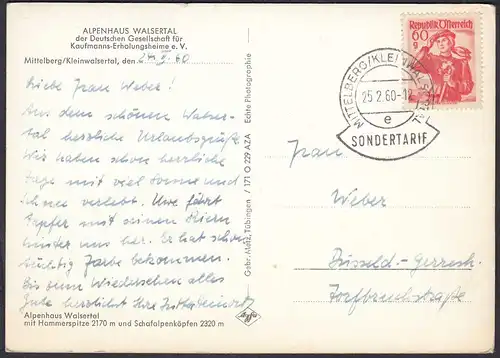 ALPENHAUS WALSERTAL
der Deutschen Gesellschaft für
Kaufmanns-Erholungsheime e. V.
Mittelberg/Kleinwalsertal, den 24. II. 60
Liebe Frau Weber!
Aus dem schönen Walser-
tal herzliche Urlaubsgrüße
Wir haben schon herrliche
Tage mit viel Sonne und
Schnee verlebt. Uwe fährt
tapfer mit seinen Skiern
hinter uns her. Er hat schon
tüchtig Farbe bekommen.
Bis zum Wiedersehen alles
Gute herzlichst Ihre
Alpenhaus Walsertal
mit Hammerspitze 2170 m und Schafalpenköpfen 2320 m
Gebr. Metz, Tübingen / 171 O 229 AZA Echte Photographie
Agfa
Republik Österreich
60
g
MITTELBERG/KLEINWALSERTAL
25.2.60-12
e
SONDERTARIF
Frau
Weber
Düsseld.-Gerresh.
Torfbruchstraße